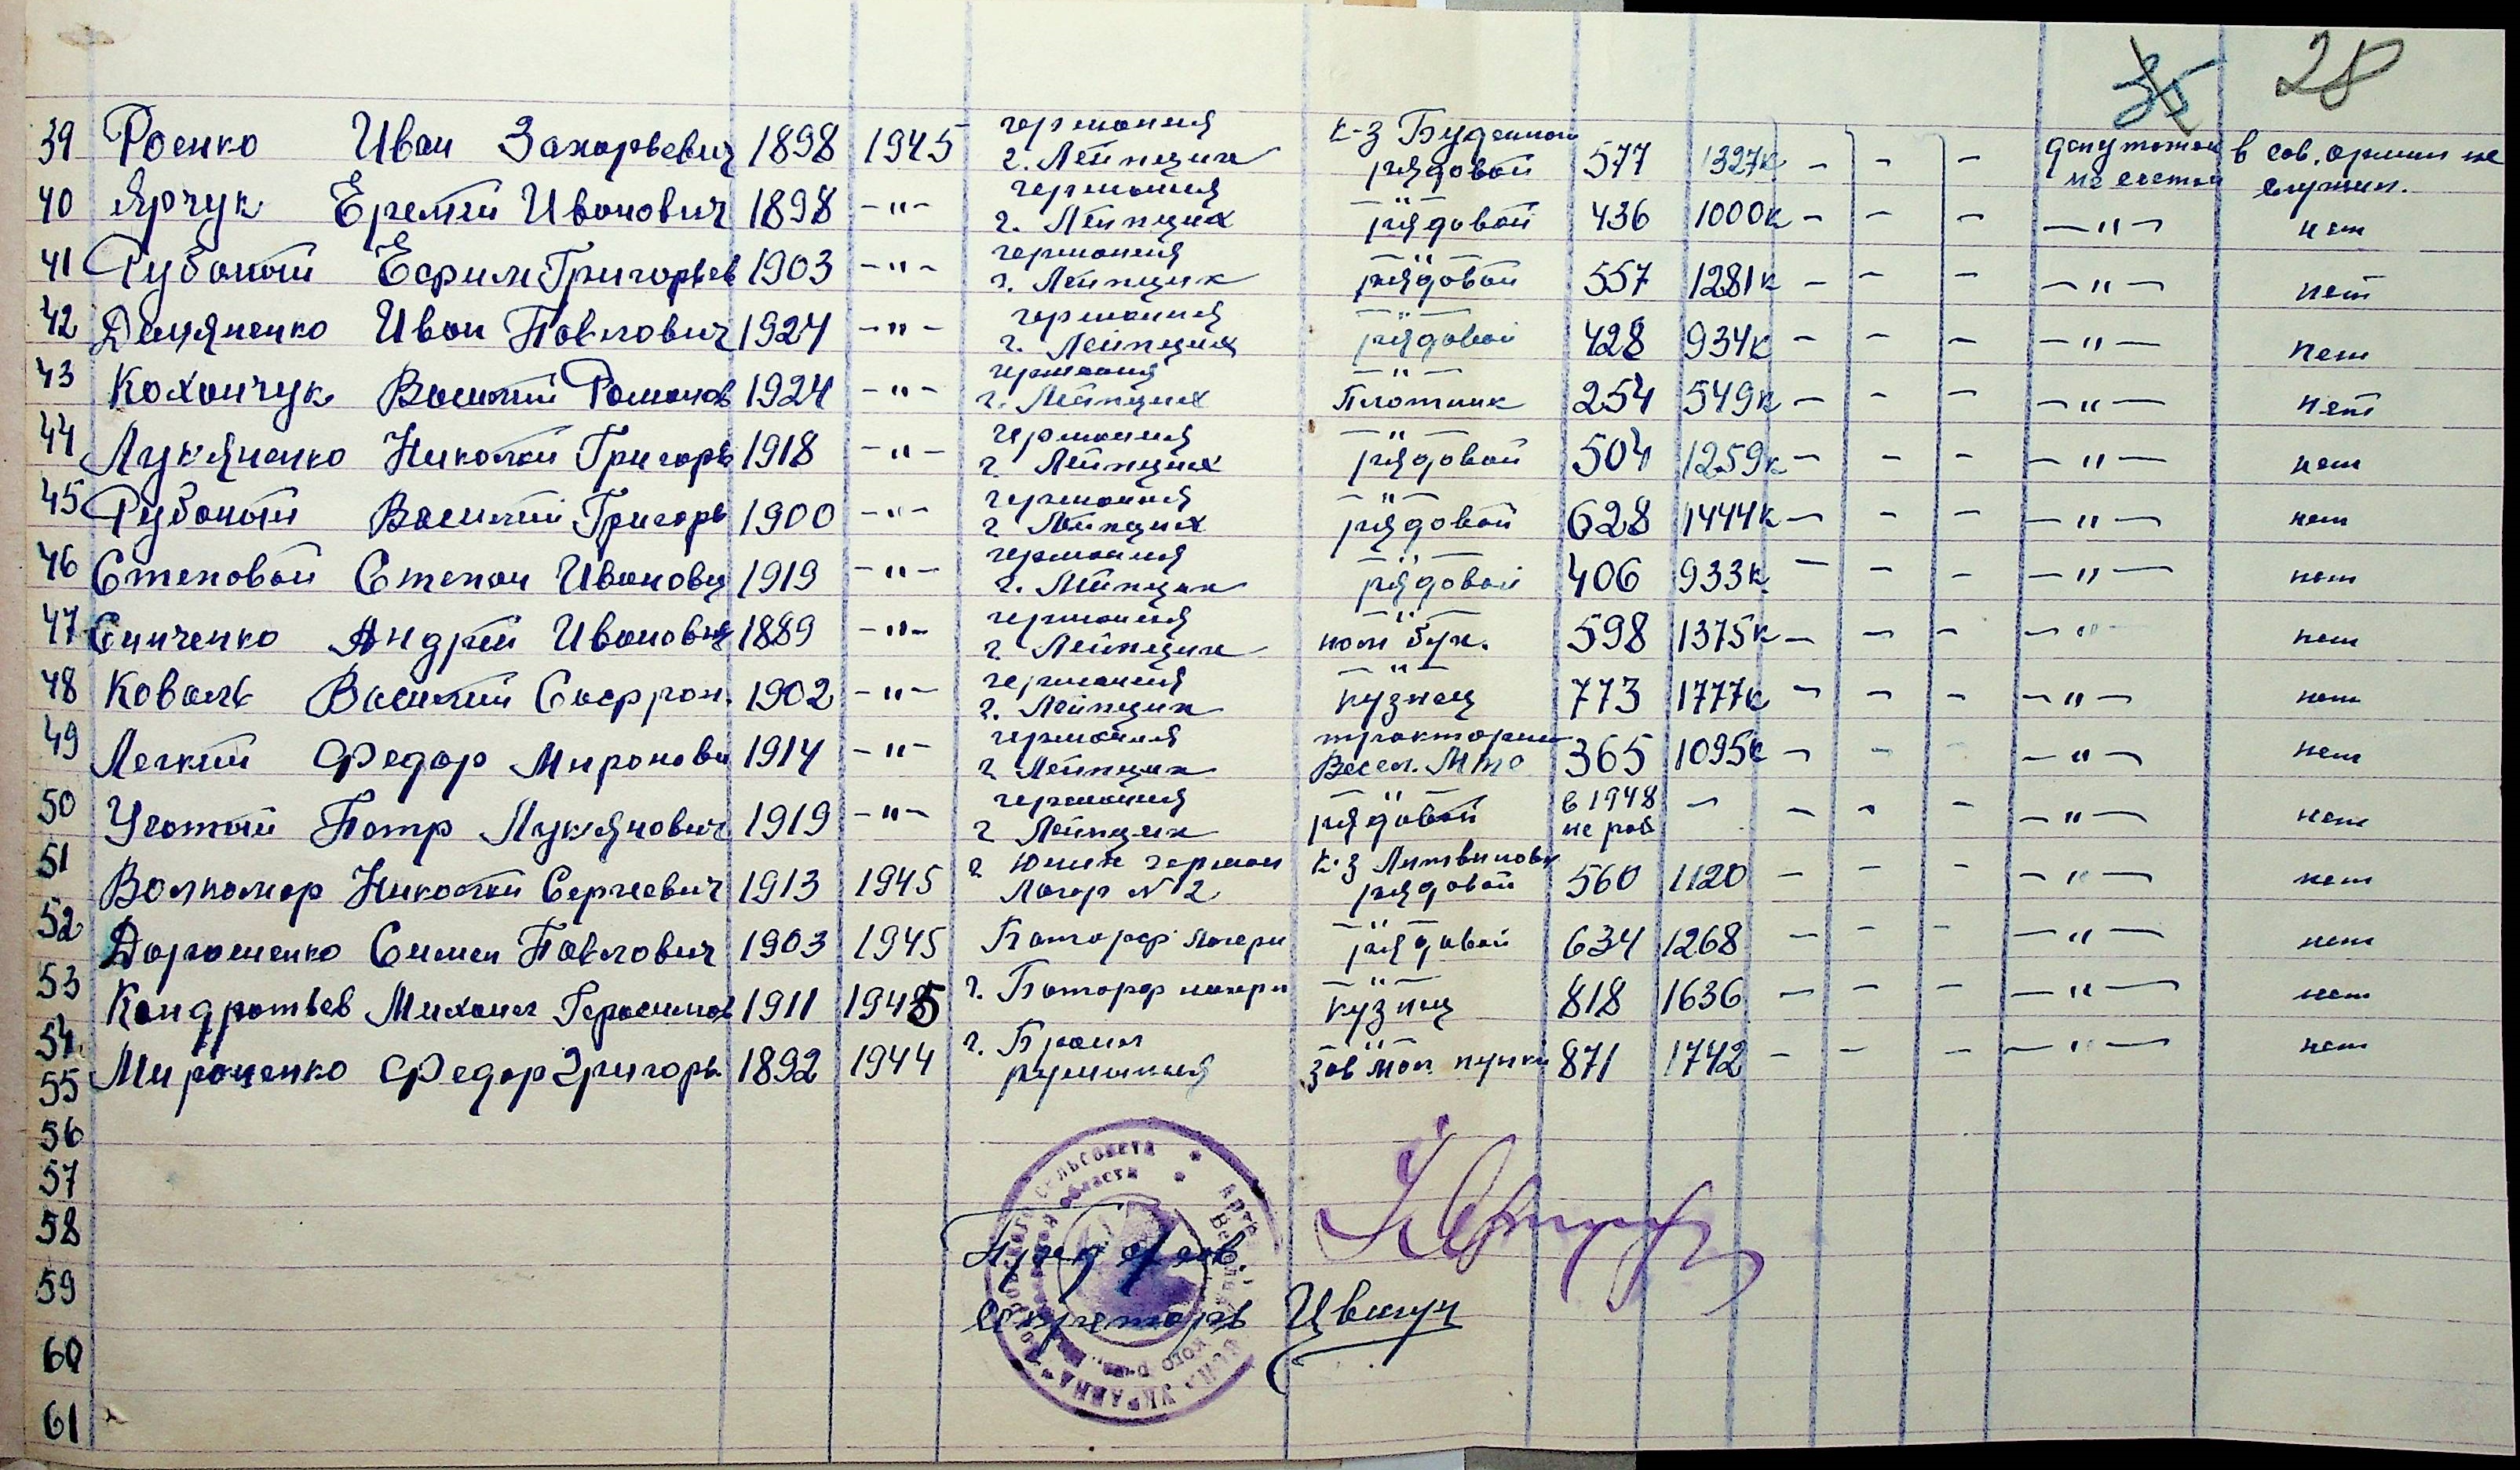 35 28
39 Роенко Иван Захарьевич 1898 1945 германия г. Лейпциг к-з Буденного рядовой 577 1327к - - - депутатом не состоял в сов. армии не служил.
40 Ярчук Еремей Иванович 1898 -"- германия г. Лейпциг -"- рядовой 436 1000к - - - -"- нет
41 Рубаной Ефрим Григорьев 1903 -"- германия г. Лейпциг -"- рядовой 557 1281к - - - -"- нет
42 Демяненко Иван Павлович 1924 -"- германия г. Лейпциг -"- рядовой 428 934к - - - -"- нет
43 Коханчук Василий Романов 1924 -"- германия г. Лейпциг -"- Плотник 254 549к - - - -"- нет
44 Лукяненко Николай Григорь 1918 -"- германия г Лейпциг -"- рядовой 504 1259к - - - -"- нет
45 Рубаной Василий Григорь 1900 -"- германия г Лейпциг -"- рядовой 628 1444к - - - -"- нет
46 Степовой Степан Иванович 1919 -"- германия г. Лейпциг -"- рядовой 406 933к - - - -"- нет
47 Синченко Андрей Иванович 1889 -"- германия г Лейпциг -"- пом бух. 598 1375к - - - -"- нет
48 Коваль Василий Сафрон. 1902 -"- германия г. Лейпциг -"- кузнец 773 1777к - - - -"- нет
49 Легкий Федор Миронови 1914 -"- германия г Лейпциг тракторист Весел. Мтс 365 1095к - - - -"- нет
50 Петр Лукянович 1919 -"- германия г Лейпциг -"- рядовой в 1948 не раб - - - - -"- нет
51 Волкомор Николай Сергеевич 1913 1945 г герман Лагер N 2 к-з Литвиновк рядовой 560 1120 - - - -"- нет
52 Дорошенко Симен Павлович 1903 1945 лагери -"- рядовой 634 1268 - - - -"- нет
53 Кондратьев Михаил Герасимов 1911 1945 г. лагери -"- кузнец 818 1636 - - - -"- нет
54 Мироненко Федор Григорь. 1892 1944 г. Браил румыния -"- зав мол пункт 871 1742 - - - -"- нет
55
56
57
58 Пред с/сов.
59 Секретарь
60
61
сельсовета
области
УКРАИНА